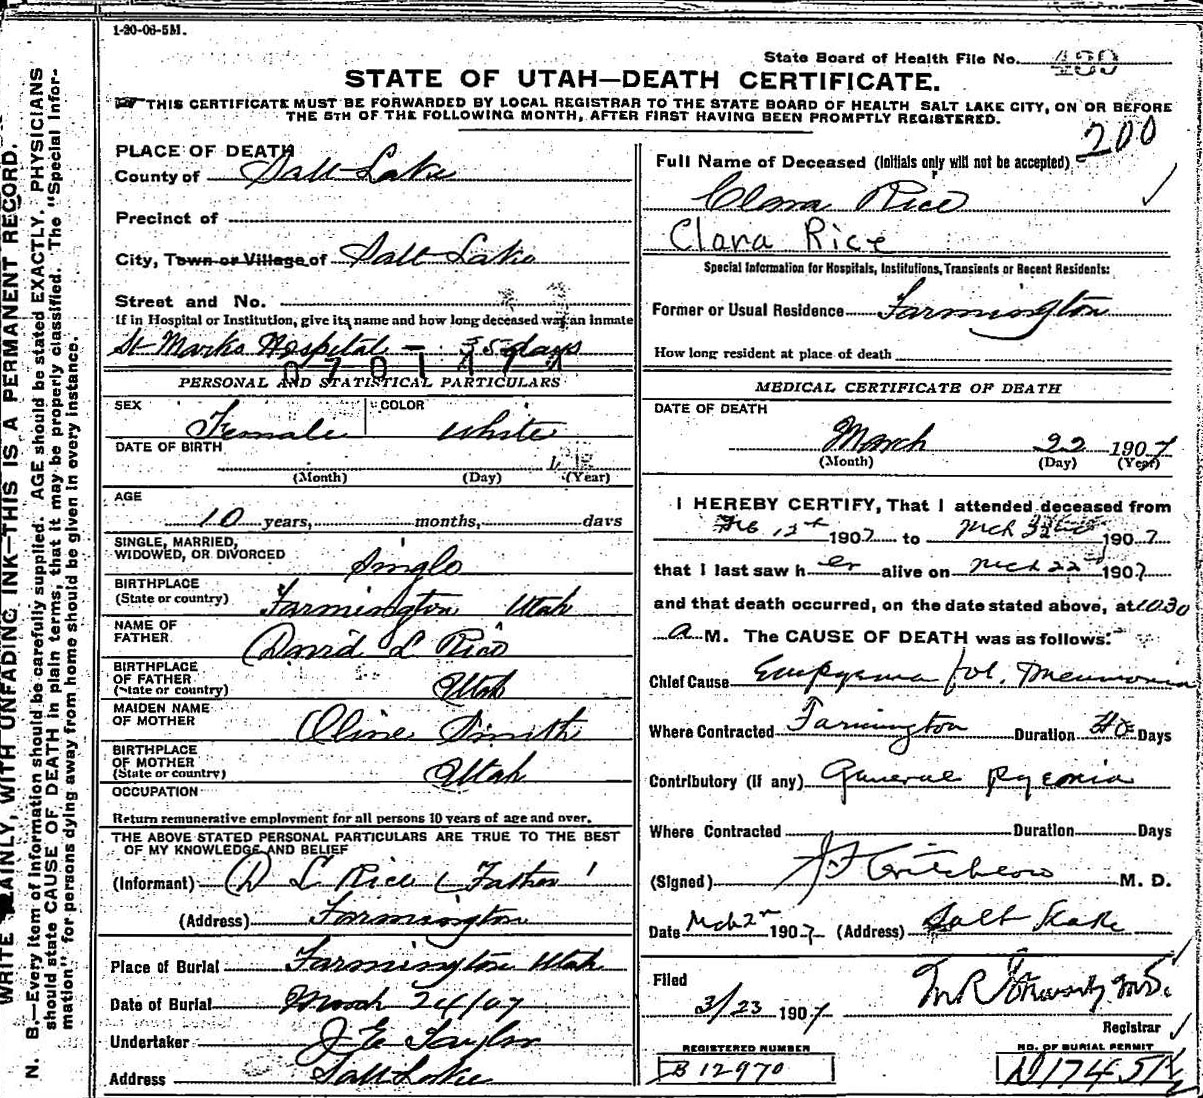 1-20-06-5M.
State Board of Health File No. 480
STATE OF UTAH—DEATH CERTIFICATE.
THIS CERTIFICATE MUST BE FORWARDED BY LOCAL REGISTRAR TO THE STATE BOARD OF HEALTH SALT LAKE CITY, ON OR BEFORE
THE 5TH OF THE FOLLOWING MONTH, AFTER FIRST HAVING BEEN PROMPTLY REGISTERED.
200
WRITE PLAINLY, WITH UNFADING INK—THIS IS A PERMANENT RECORD.
N. B.—Every item of information should be carefully supplied. AGE should be stated EXACTLY. PHYSICIANS
should state CAUSE OF DEATH in plain terms, that it may be properly classified. The "Special Infor-
mation" for persons dying away from home should be given in every instance.
PLACE OF DEATH
County of Salt Lake
Precinct of
City, Town or Village of Salt Lake
Street and No.
If in Hospital or Institution, give its name and how long deceased was an inmate
St Marks Hospital - 35 days
PERSONAL AND STATISTICAL PARTICULARS
SEX Female COLOR White
DATE OF BIRTH
(Month) (Day) (Year)
AGE
10 years, months, days
SINGLE, MARRIED,
WIDOWED, OR DIVORCED Single
BIRTHPLACE
(State or country) Farmington Utah
NAME OF
FATHER David L Rice
BIRTHPLACE
OF FATHER
(State or country) Utah
MAIDEN NAME
OF MOTHER Oline Smith
BIRTHPLACE
OF MOTHER
(State or country) Utah
OCCUPATION
Return remunerative employment for all persons 10 years of age and over.
THE ABOVE STATED PERSONAL PARTICULARS ARE TRUE TO THE BEST
OF MY KNOWLEDGE AND BELIEF
(Informant) D L Rice (Father)
(Address) Farmington
Place of Burial Farmington Utah
Date of Burial March 24/07
Undertaker J E Taylor
Address Salt Lake
Full Name of Deceased (Initials only will not be accepted)
Clara Rice
Clara Rice
Special Information for Hospitals, Institutions, Transients or Recent Residents:
Former or Usual Residence Farmington
How long resident at place of death
MEDICAL CERTIFICATE OF DEATH
DATE OF DEATH
March 22 1907
(Month) (Day) (Year)
I HEREBY CERTIFY, That I attended deceased from
Feb 12th 1907 to Mch 1907
that I last saw her alive on Mch 22 1907
and that death occurred, on the date stated above, at 10 30
a M. The CAUSE OF DEATH was as follows:
Chief Cause Empyema fol. Pneumonia
Where Contracted Farmington Duration 40 Days
Contributory (if any) General Pyemia
Where Contracted Duration Days
(Signed) Critchlow M. D.
Date Mch 1907 (Address) Salt Lake
Filed
3/23 1907
Registrar
REGISTERED NUMBER
B 12970
NO. OF BURIAL PERMIT